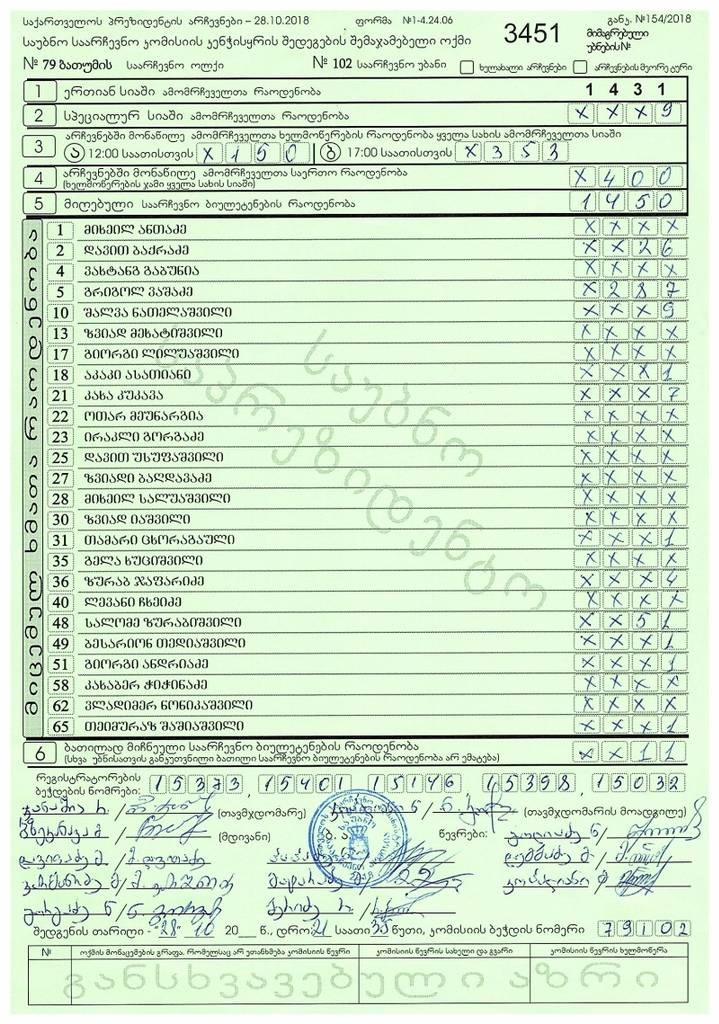 საქართველოს პრეზიდენტის არჩევნები – 28.10.2018 ფორმა №1-4.24.06 განკ. №154/2018
საუბნო საარჩევნო კომისიის კენჭისყრის შედეგების შემაჯამებელი ოქმი 3451 მიმაგრებული უბნების№
№ 79 ბათუმის საარჩევნო ოლქი № 102 საარჩევნო უბანი ხელახალი არჩევნები არჩევნების მეორე ტური
1 ერთიან სიაში ამომრჩეველთა რაოდენობა 1 4 3 1
2 სპეციალურ სიაში ამომრჩეველთა რაოდენობა X X X 9
არჩევნებში მონაწილე ამომრჩეველთა ხელმოწერების რაოდენობა ყველა სახის ამომრჩეველთა სიაში
3 ა 12:00 საათისთვის X 1 5 0 ბ 17:00 საათისთვის X 3 5 3
4 არჩევნებში მონაწილე ამომრჩეველთა საერთო რაოდენობა X 4 0 0
(ხელმოწერების ჯამი ყველა სახის სიაში)
5 მიღებული საარჩევნო ბიულეტენების რაოდენობა 1 4 5 0
მიცემულ ხმათა რაოდენობა
1 მიხეილ ანთაძე X X X X
2 დავით ბაქრაძე X X 2 6
4 ვახტანგ გაბუნია X X X X
5 გრიგოლ ვაშაძე X 2 8 7
10 შალვა ნათელაშვილი X X X 9
13 ზვიად მეხატიშვილი X X X X
17 გიორგი ლილუაშვილი X X X X
18 აკაკი ასათიანი X X X 1
21 კახა კუკავა X X X 7
22 ოთარ მეუნარგია X X X X
23 ირაკლი გორგაძე X X X X
25 დავით უსუფაშვილი X X X X
27 ზვიადი ბაღდავაძე X X X X
28 მიხეილ სალუაშვილი X X X X
30 ზვიად იაშვილი X X X X
31 თამარი ცხორაგაული X X X 1
35 გელა ხუციშვილი X X X X
36 ზურაბ ჯაფარიძე X X X 4
40 ლევანი ჩხეიძე X X X X
48 სალომე ზურაბიშვილი X X 5 1
49 ბესარიონ თედიაშვილი X X X 1
51 გიორგი ანდრიაძე X X X 1
58 კახაბერ ჭიჭინაძე X X X X
62 ვლადიმერ ნონიკაშვილი X X X X
65 თეიმურაზ შაშიაშვილი X X X 1
საუბნო
საპრეზიდენტო
6 ბათილად მიჩნეული საარჩევნო ბიულეტენების რაოდენობა X X 1 1
(სხვა უბნისათვის განკუთვნილი ბათილი საარჩევნო ბიულეტენების რაოდენობა არ ემატება)
რეგისტრატორების
ბეჭდების ნომრები: 15373, 15401, 15146, 15398, 15032
(თავმჯდომარე) (თავმჯდომარის მოადგილე)
(მდივანი) წევრები:
შედგენის თარიღი - "28" 10 20__ წ., დრო: 21 საათი 35 წუთი, კომისიის ბეჭდის ნომერი 79102
№ ოქმის მონაცემების გრაფა, რომელსაც არ ეთანხმება კომისიის წევრი კომისიის წევრის სახელი და გვარი კომისიის წევრის ხელმოწერა
განსხვავებული აზრი